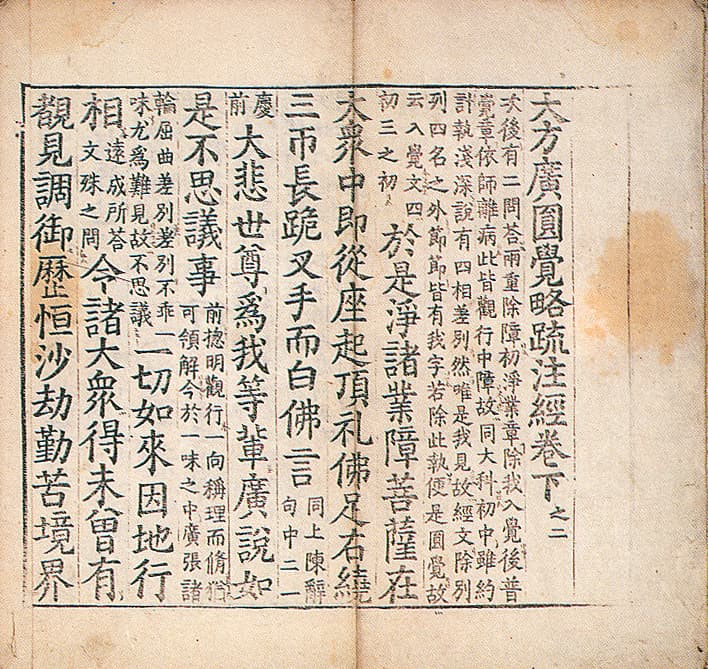 大方廣圓覺略疏注經卷下之二
次後有二問荅兩重除障初淨業章除我入覺後普
覺章依師離病此皆觀行中障故同大科初中雖約
計執淺深說有四相差別然唯是我見故經文除別
列四名之外節節皆有我字若除此執便是圓覺故
云入覺文四
初三之初
於是淨諸業障菩薩在
大衆中即從座起頂礼佛足右繞
三帀長跪叉手而白佛言
同上陳辭
句中二一
慶
前
大悲世尊爲我等輩廣說如
是不思議事
前揔明觀行一向稱理而脩猶
可領解今於一味之中廣張諸
輪屈曲差別差別不乖一
味尤爲難見故不思議
一切如來因地行
相
遠成所荅
文殊之問
今諸大衆得未曾有
覩見調御歷恒沙劫勤苦境界